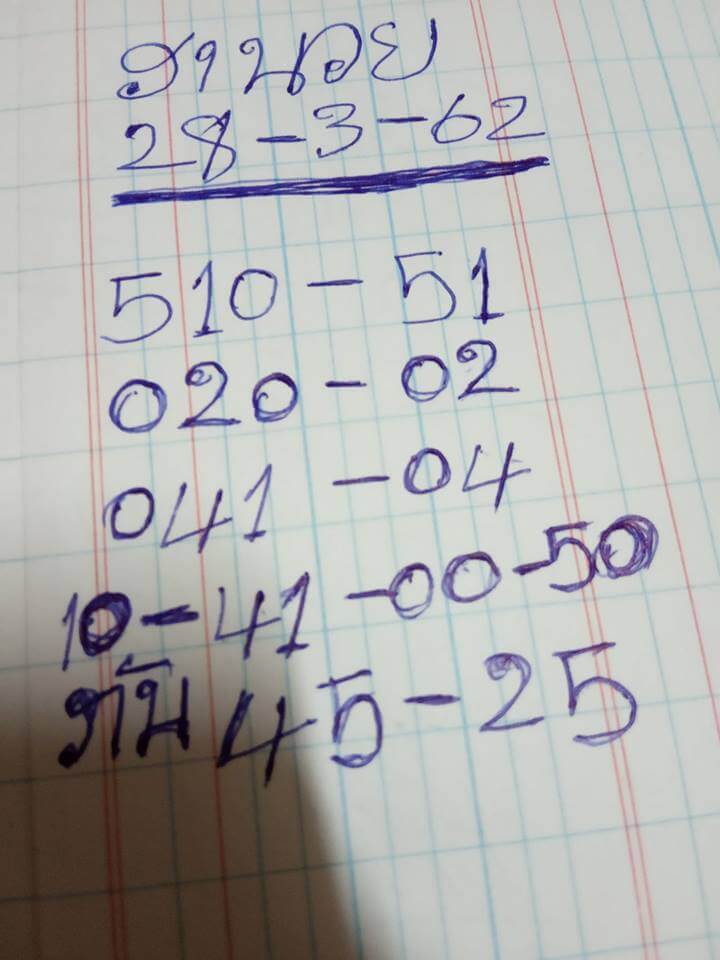 ฮานอย
28-3-62
510 - 51
020 - 02
041 - 04
10 - 41 - 00 - 50
กัน 45 - 25